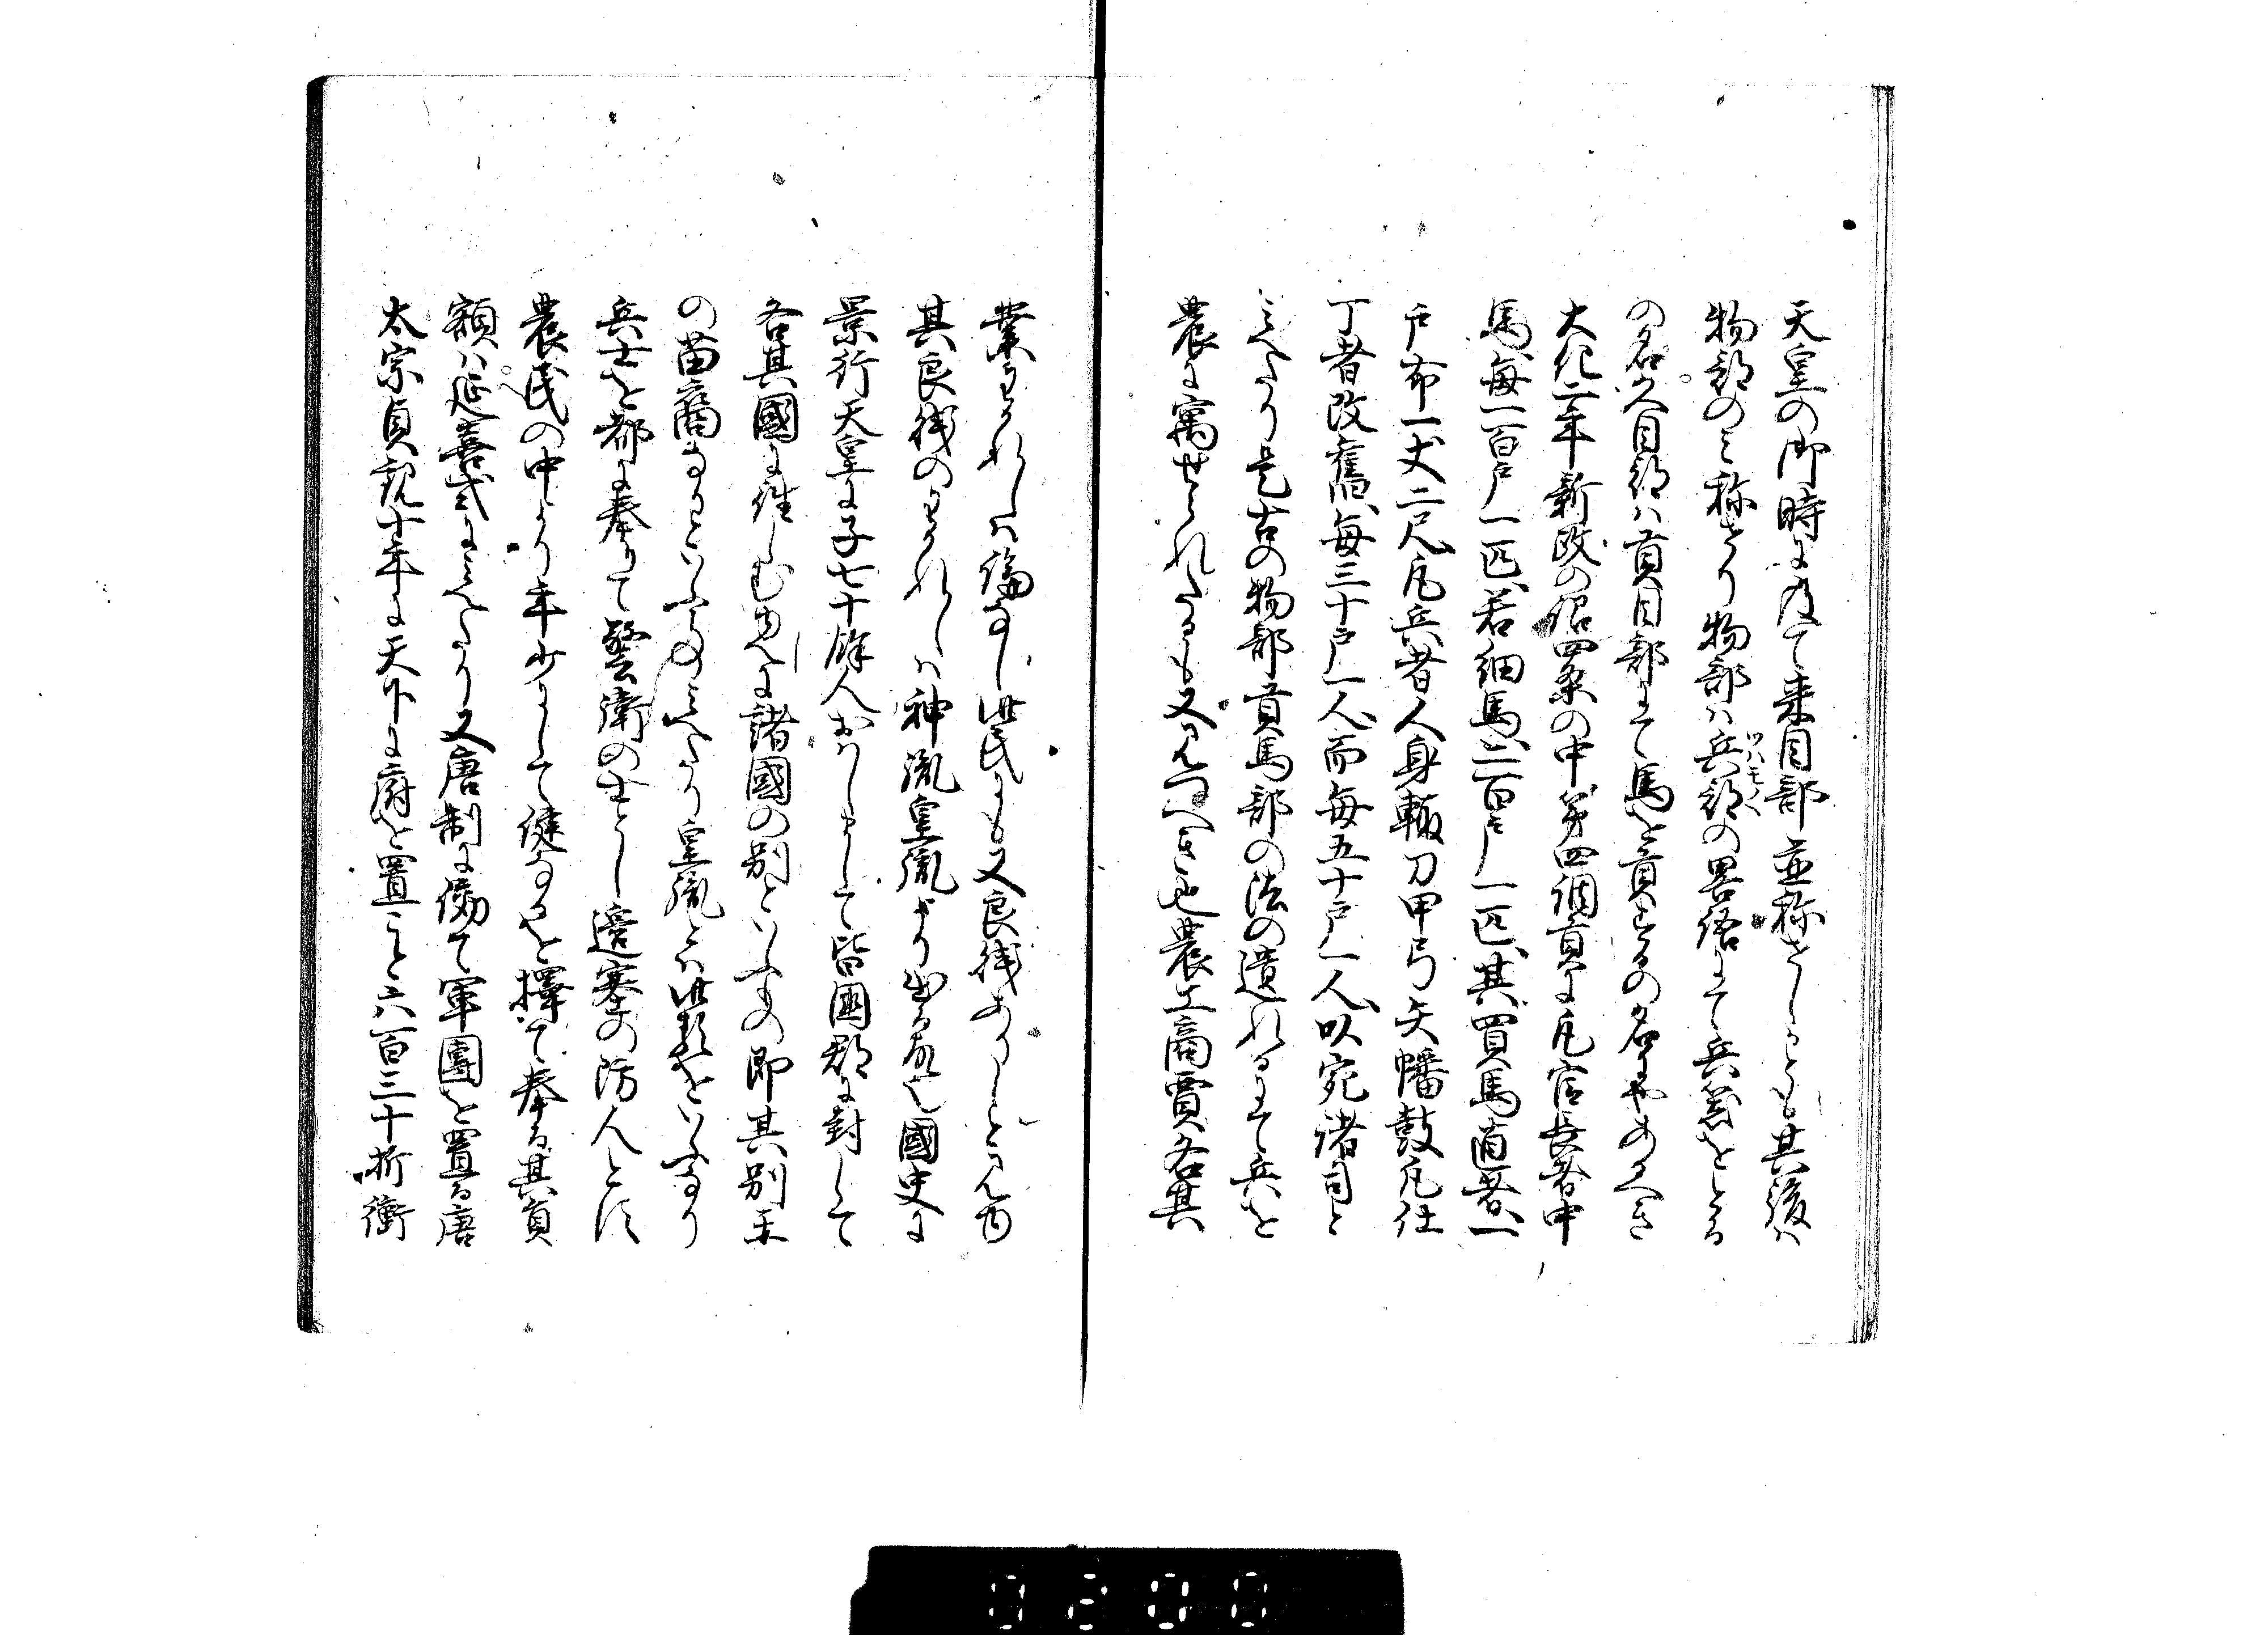 天皇の御時に及て来目部並称せしかとも其後ハ
物部のミ称せり物部ハ兵部の畧語にて兵器をとる
ツハモノヘ
の名久目部ハ貢目部にて馬を貢するの名にやあるへき
大化二年新政の詔四条の中第四調貢に凡官長者中
馬毎一百戸一匹若細馬二百戸一匹其買馬直者一
戸布一丈二尺凡兵者人身輸刀甲弓矢幡鼓凡仕
丁者改舊毎三十戸一人而毎五十戸一人以宛諸司と
ミへたり是古の物部貢馬部の法の遺れるにて兵を
農に寓せられたるも又見つへき也農工商賈各其
業わかれしハ論なし此民にも又良賎ありしと見ゆ
其良賎のわかれしハ神胤皇胤より出る故也國史に
景行天皇に子七十餘人おハしまして皆國郡に封して
各其國に徃しむゆへに諸國の別といふもの即其別王
の苗裔なりといふ事ミへたり皇胤とハ此類をいふなり
兵士を都に奉りて警衛の士とし邊塞の防人とす
農民の中より年少にして健なるを擇て奉る其員
額ハ延喜式にミへたり又唐制に倣て軍團を置る唐
太宗貞観十年に天下に府を置こと六百三十折衝
0200